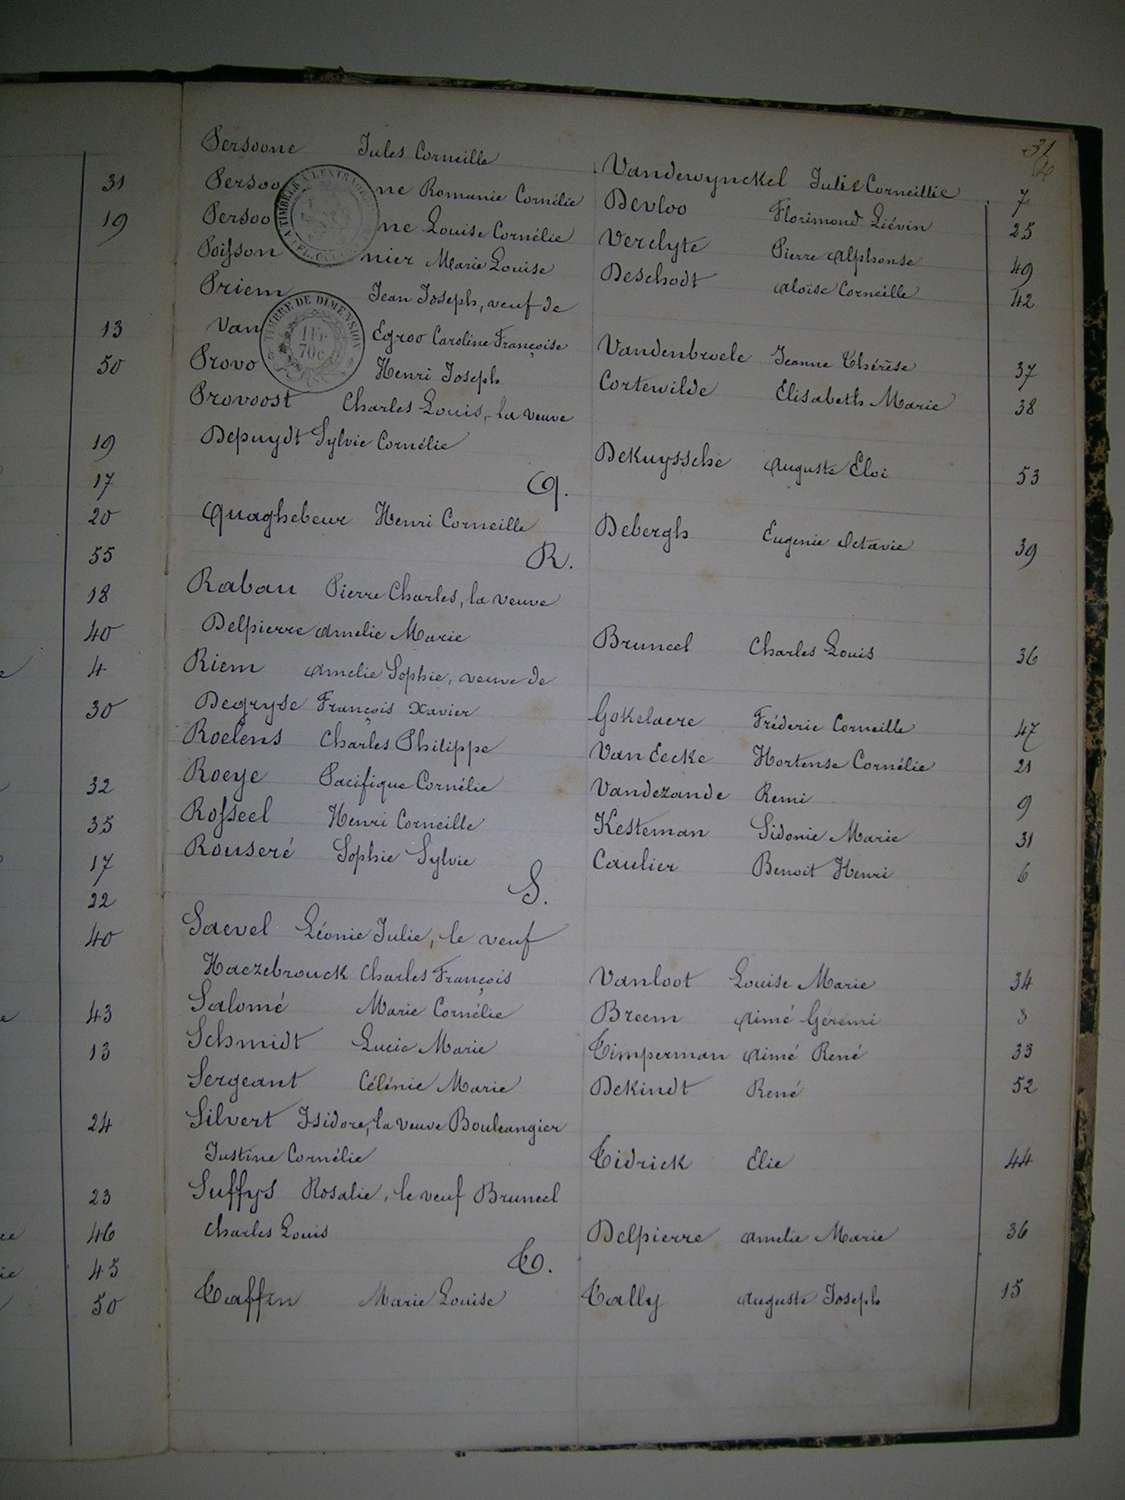 31
Persoone Jules Corneille Vandewynckel Julie Corneillie 7
Persoone Romanie Cornélie Devloo Florimond Liévin 25
Persoone Louise Cornélie Verclyte Pierre Alphonse 49
Poissonnier Marie Louise Deschodt Aloïse Corneille 42
Priem Jean Joseph, veuf de
Van Egroo Caroline Françoise Vandenbroele Jeanne Thérèse 37
Provo Henri Joseph Cortewilde Elisabeth Marie 38
Provoost Charles Louis, la veuve
Depuydt Sylvie Cornélie DeKuyssche Auguste Eloi 53
Q.
Quaghebeur Henri Corneille Debergh Eugenie Octavie 39
R.
Raban Pierre Charles, la veuve
Delpierre Amelie Marie Bruneel Charles Louis 36
Riem Amelie Sophie, veuve de
Degryse François Xavier Gokelaere Fréderic Corneille 47
Roelens Charles Philippe Van Eecke Hortense Cornélie 21
Roeye Pacifique Cornélie Vandezande Remi 9
Rosseel Henri Corneille Kesteman Sidonie Marie 31
Rouseré Sophie Sylvie Caulier Benoit Henri 6
S.
Saevel Léonie Julie, le veuf
Haezebrouck Charles François Vanloot Louise Marie 34
Salomé Marie Cornélie Breem Aimé Gérémi 3
Schmidt Lucie Marie Timperman Aimé René 33
Sergeant Célénie Marie DeKindt René 52
Silvert Isidore, la veuve Bouleangier
Justine Cornélie Tidrick Elie 44
Suffys Rosalie, le veuf Bruneel
Charles Louis Delpierre Amelie Marie 36
T.
Taffin Marie Louise Tally Auguste Joseph 15
TIMBRE DE DIMENSION
1 Fr
70c
31
19
13
50
19
17
20
55
18
40
4
30
32
35
17
22
40
43
13
24
23
46
45
50